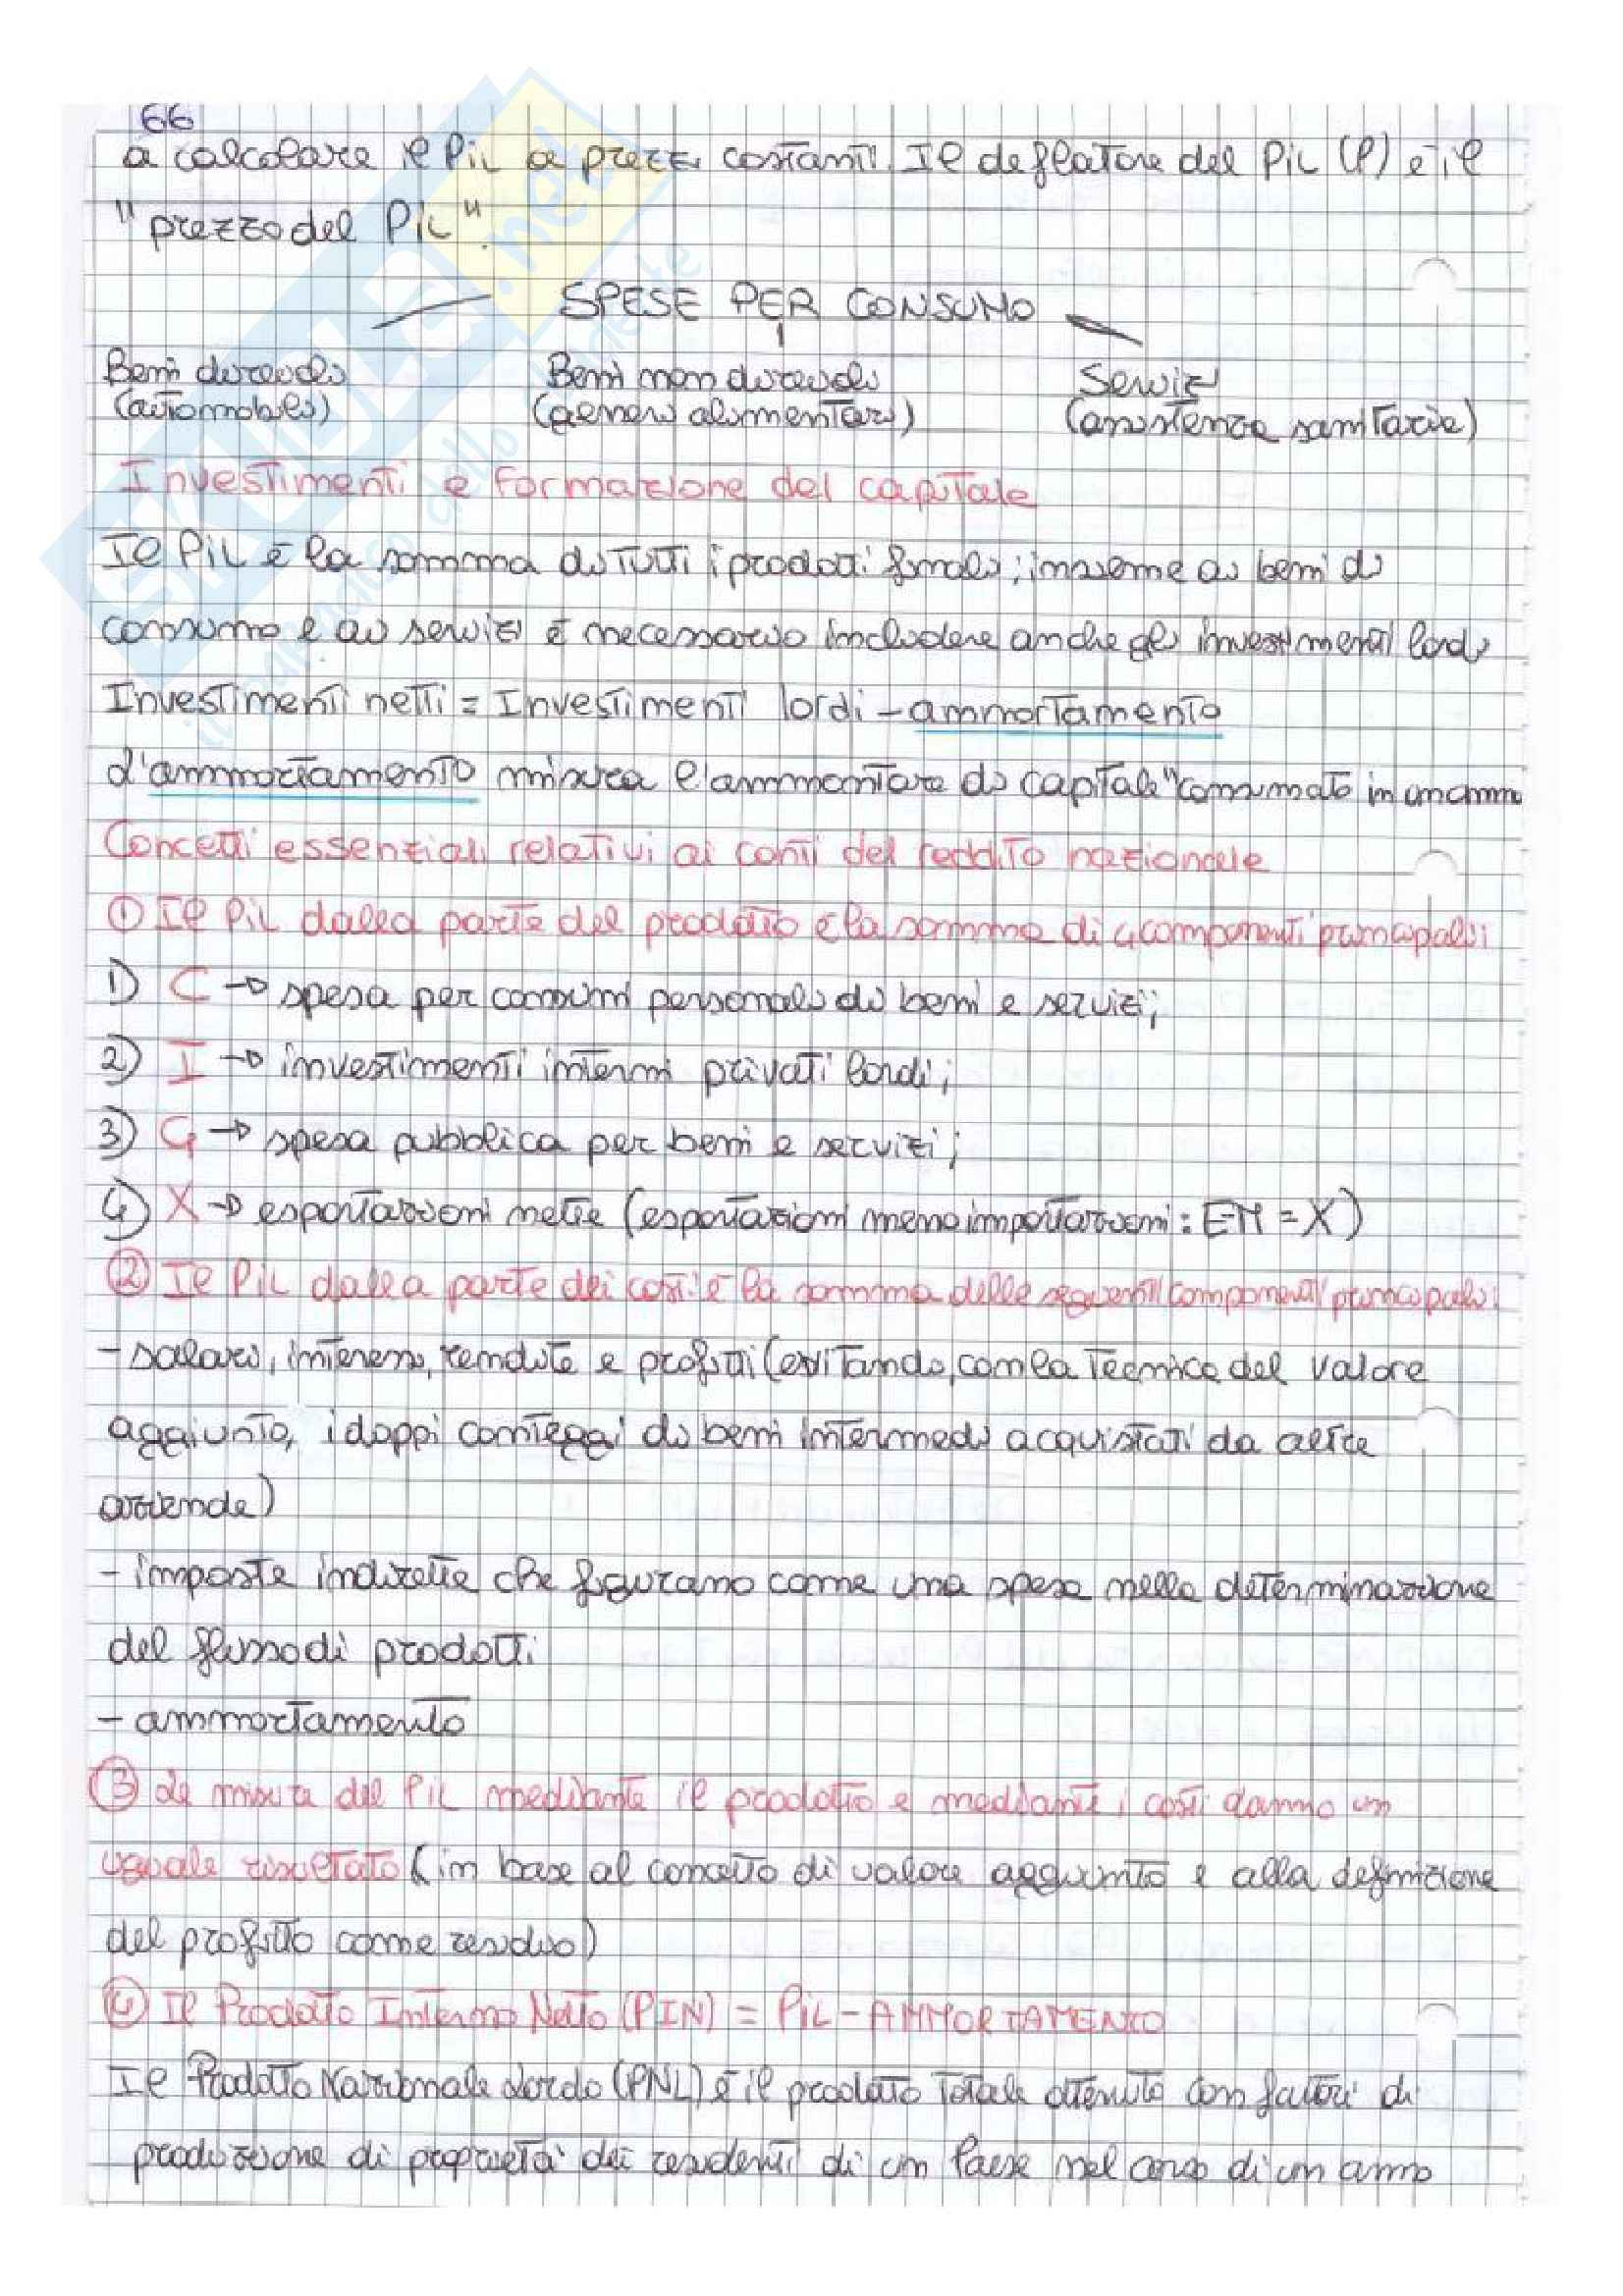 66
a calcolare il PiL a prezzi costanti. Il deflatore del PiL (P) è il
"prezzo del PiL".
SPESE PER CONSUMO
Beni durevoli Beni non durevoli Servizi
(automobili) (generi alimentari) (assistenza sanitaria)
Investimenti e formazione del capitale
Il PiL è la somma di tutti i prodotti finali; insieme ai beni di
consumo e ai servizi è necessario includere anche gli investimenti lordi
Investimenti netti = Investimenti lordi - ammortamento
L'ammortamento misura l'ammontare di capitale "consumato in un anno
Concetti essenziali relativi ai conti del reddito nazionale
① Il PiL dalla parte del prodotto è la somma di 4 componenti principali:
1) C → spesa per consumi personali di beni e servizi;
2) I → investimenti interni privati lordi;
3) G → spesa pubblica per beni e servizi;
4) X → esportazioni nette (esportazioni meno importazioni: E-M = X)
② Il PiL dalla parte dei costi è la somma delle seguenti componenti principali:
- salari, interessi, rendite e profitti (evitando, con la tecnica del valore
aggiunto, i doppi conteggi di beni intermedi acquistati da altre
aziende)
- imposte indirette che figurano come una spesa nella determinazione
del flusso di prodotti
- ammortamento
③ La misura del PiL mediante il prodotto e mediante i costi danno un
uguale risultato (in base al concetto di valore aggiunto e alla definizione
del profitto come residuo)
④ Il Prodotto Interno Netto (PIN) = PiL - AMMORTAMENTO
Il Prodotto Nazionale Lordo (PNL) è il prodotto totale ottenuto con fattori di
produzione di proprietà dei residenti di un Paese nel corso di un anno
SKUOLA.net
il paradiso dello studente